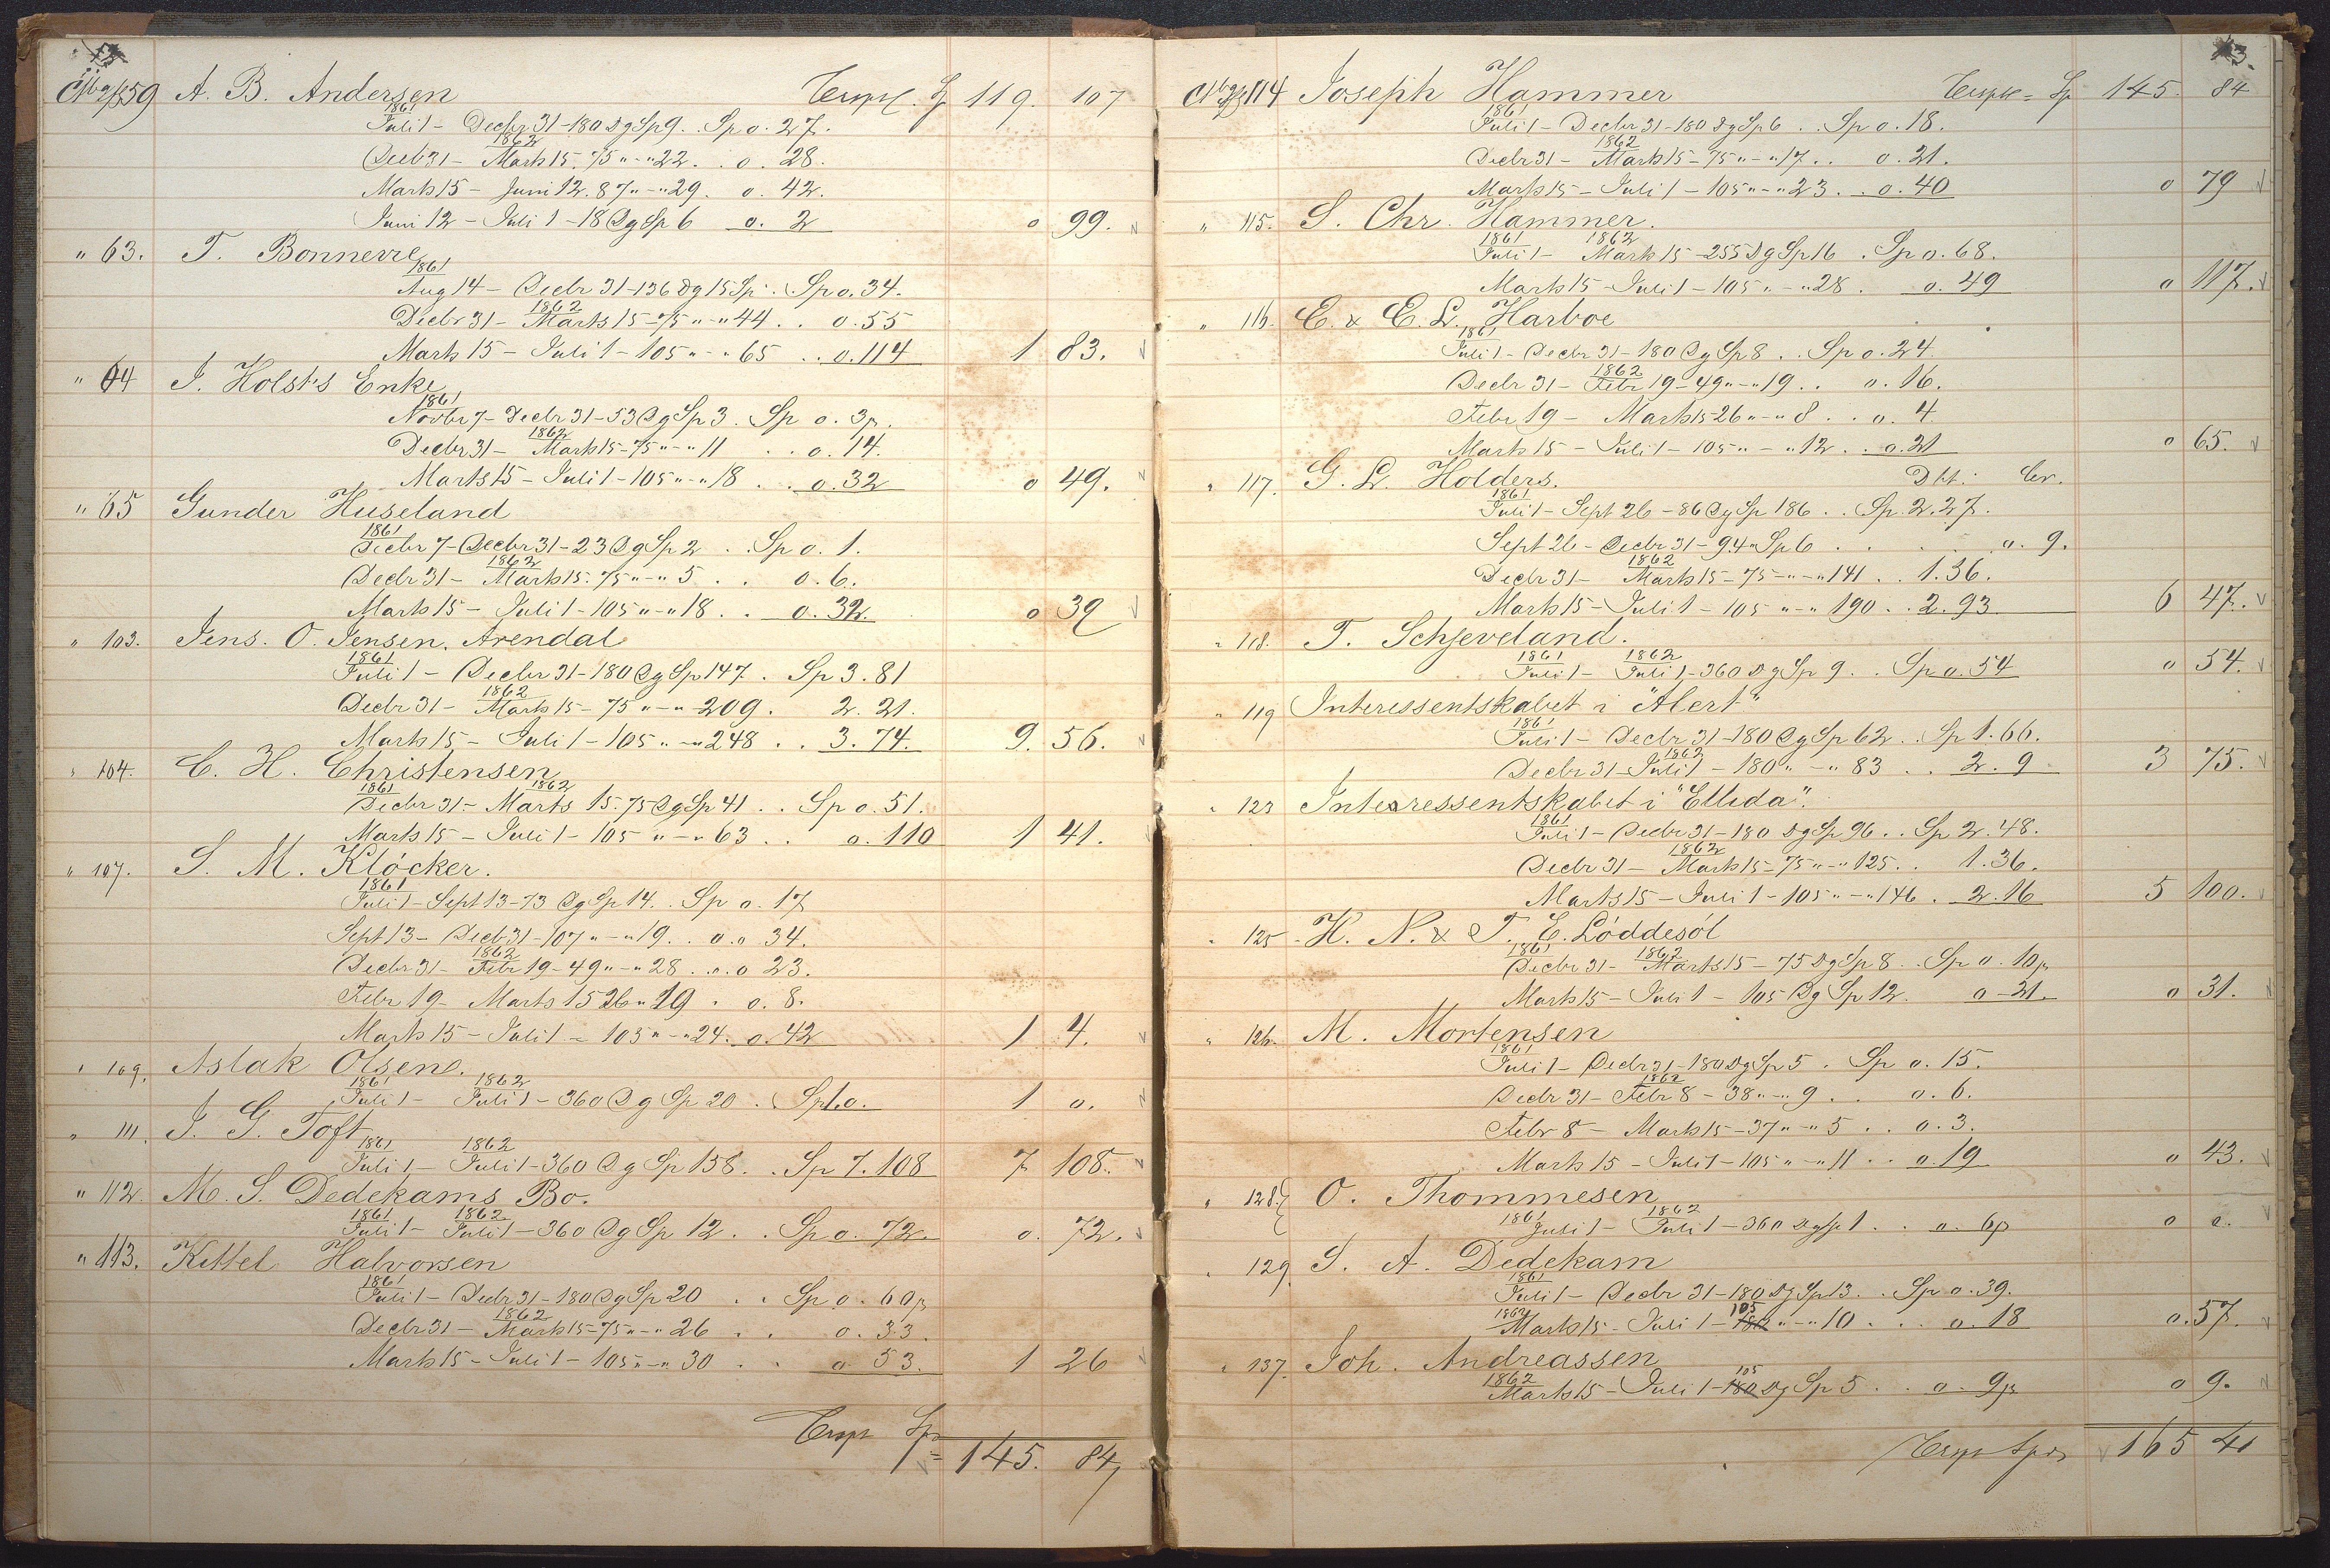 A. B. Andersen Sp 119. 107
1861
Juli 1 – Decbr 31 – 180 Dg Sp 9. . Sp o. 27.
1862
Decb 31 – Marts 15. 75 " – " 22. . o. 28.
Marts 15 – Juni 12. 87 " – " 29. o. 42.
Juni 12 – Juli 1 – 18 Dg Sp 6 o. 2 o 99.
" 63. T. Bonnevie
1861
Aug 14 – Decbr 31 – 136 Dg 15 Sp. . Sp o. 34.
1862
Decbr 31 – Marts 15 – 75 " – " 44 . . o. 55
Marts 15 – Juli 1 – 105 " – " 65 . . o. 114 1 83.
" 64 J. Holsts Enke
1861
Novbr 7 – Decbr 31 – 53 Dg Sp 3. Sp o. 3
1862
Decbr 31 – Marts 15 – 75 " – " 11 . . o. 14.
Marts 15 – Juli 1 – 105 " – " 18 . . o. 32 o 49.
" 65 Gunder Huseland
1861
Decbr 7 – Decbr 31 – 23 Dg Sp 2 . . Sp o. 1.
1862
Decbr 31 – Marts 15. 75 " – " 5 . . o. 6.
Marts 15 – Juli 1 – 105 " – " 18 . . o. 32. o 39
" 103. Jens. O. Jensen, Arendal
1861
Juli 1 – Decbr 31 – 180 Dg Sp 147. Sp 3. 81
1862
Decbr 31 – Marts 15 – 75 " – " 209. 2. 21.
Marts 15 – Juli 1 – 105 " – " 248 . . 3. 74. 9. 56.
" 104. C. H. Christensen
1861 1862
Decbr 31 – Marts 15. 75 Dg Sp 41 . . Sp o. 51.
Marts 15 – Juli 1 – 105 " – " 63 . . o. 110 1 41.
" 107. S. M. Klöcker.
1861
Juli 1 – Sept 13 – 73 Dg Sp 14. . Sp o. 17
Sept 13 – Decb 31 – 107 " – " 19. . o. 34.
1862
Decbr 31 – Febr 19 – 49 " – " 28 . . o 23.
Febr 19 – Marts 15 26 " 19 . o. 8.
Marts 15 – Juli 1 – 105 " – " 24. o. 42 1 4.
" 109. Aslak Olsen.
1861 1862
Juli 1 – Juli 1 – 360 Dg Sp 20 . Sp 1. o. 1 o.
" 111. J. G. Toft
1861 1862
Juli 1 – Juli 1 – 360 Dg Sp 158. . Sp 7. 108 7 108.
" 112. M. S. Dedekams Bo.
1861 1862
Juli 1 – Juli 1 – 360 Dg Sp 12 . . Sp o. 72. o. 72.
" 113. Kittel Halvorsen
1861
Juli 1 – Decbr 31 – 180 Dg Sp 20 . . Sp o. 60
1862
Decbr 31 – Marts 15 – 75 " – " 26 . . o. 33.
Marts 15 – Juli 1 – 105 " – " 30 . . o. 53. 1 26
145. 84
114 Joseph Hammer Sp 145. 84
1861
Juli 1 – Decbr 31 – 180 Dg Sp 6 . . Sp o. 18.
1862
Decbr 31 – Marts 15 – 75 " – " 17 . . o. 21.
Marts 15 – Juli 1 – 105 " – " 23 . . o. 40 o 79
" 115. S. Chr. Hammer.
1861 1862
Juli 1 – Marts 15 – 255 Dg Sp 16 . Sp o. 68.
Marts 15 – Juli 1 – 105 " – " 28 . o. 49 o 117.
" 116. C. & E. L. Harboe
1861
Juli 1 – Decbr 31 – 180 Dg Sp 8 . . Sp o. 24.
1862
Decbr 31 – Febr 19 – 49 " – " 19 . . o. 16.
Febr 19 – Marts 15 26 " – " 8 . . o. 4
Marts 15 – Juli 1 – 105 " – " 12 . . o. 21 o 65.
" 117. G. L. Holders. Dbt: Cr.
1861
Juli 1 – Sept 26 – 86 Dg Sp 186 . . Sp 2. 27.
Sept 26 – Decbr 31 – 94 " Sp 6 . . . . o. 9.
1862
Decbr 31 – Marts 15 – 75 – " – " 141 . . 1. 36.
Marts 15 – Juli 1 – 105 " – " 190 . . 2. 93 6 47.
" 118. T. Schjeveland.
1861 1862
Juli 1 – Juli 1 – 360 Dg Sp 9 . . Sp o. 54 o 54.
" 119 Interessentskabet i "Alert"
1861
Juli 1 – Decbr 31 – 180 Dg Sp 62 . . Sp 1. 66.
1862
Decbr 31 – Juli 1 – 180 " – " 83 . . 2. 9 3 75.
" 123 Interressentskabet i "Ellida".
1861
Juli 1 – Decbr 31 – 180 Dg Sp 96 . . Sp 2. 48.
1862
Decbr 31 – Marts 15 – 75 " – " 125 . . 1. 36.
Marts 15 – Juli 1 – 105 " – " 146 . 2. 16 5 100.
" 125 H. N. & T. E. Löddesöl
1861 1862
Decbr 31 – Marts 15 – 75 Dg Sp 8 . . Sp o. 10
Marts 15 – Juli 1 – 105 Dg Sp 12. o – 21 o 31.
" 126. M. Mortensen
1861
Juli 1 – Decbr 31 – 180 Dg Sp 5 . Sp o. 15.
1862
Decbr 31 – Febr 8 – 38 " – " 9 . . o. 6.
Febr 8 – Marts 15 – 37 " – " 5 . . o. 3.
Marts 15 – Juli 1 – 105 " – " 11 . . o. 19 o 43.
" 128. O. Thommesen
1861 1862
Juli 1 – Juli 1 – 360 Dg Sp 1 . . o. 6 o
" 129. S. A. Dedekam
1861
Juli 1 – Decbr 31 – 180 Dg Sp 13 . . Sp o. 39.
1862 105
Marts 15 – Juli 1 – 180 " – " 10 . . . o. 18 o. 57.
" 137. Joh. Andreassen
1862 105
Marts 15 – Juli 1 – 180 Dg Sp 5 . . o – 9 o 9.
165 41